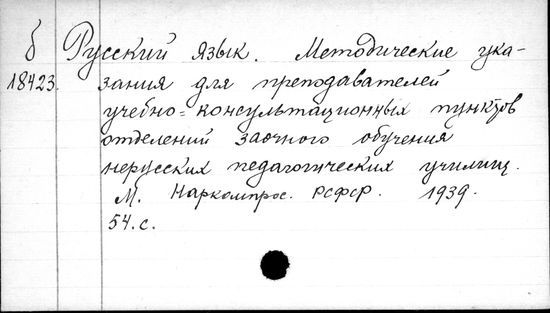 б Русский язык. Методические ука-
18423. зания для преподавателей
учебно-консультационных пунктов
отделений заочного обучения
нерусских педагогических училищ.
М. Наркомпрос. РСФСР. 1939.
54. с.